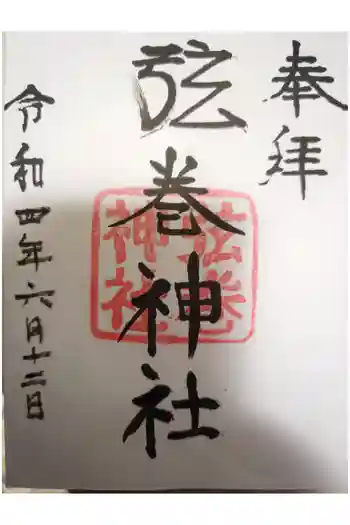 奉拝
弦巻神社
弦巻
神社
令和四年六月十二日